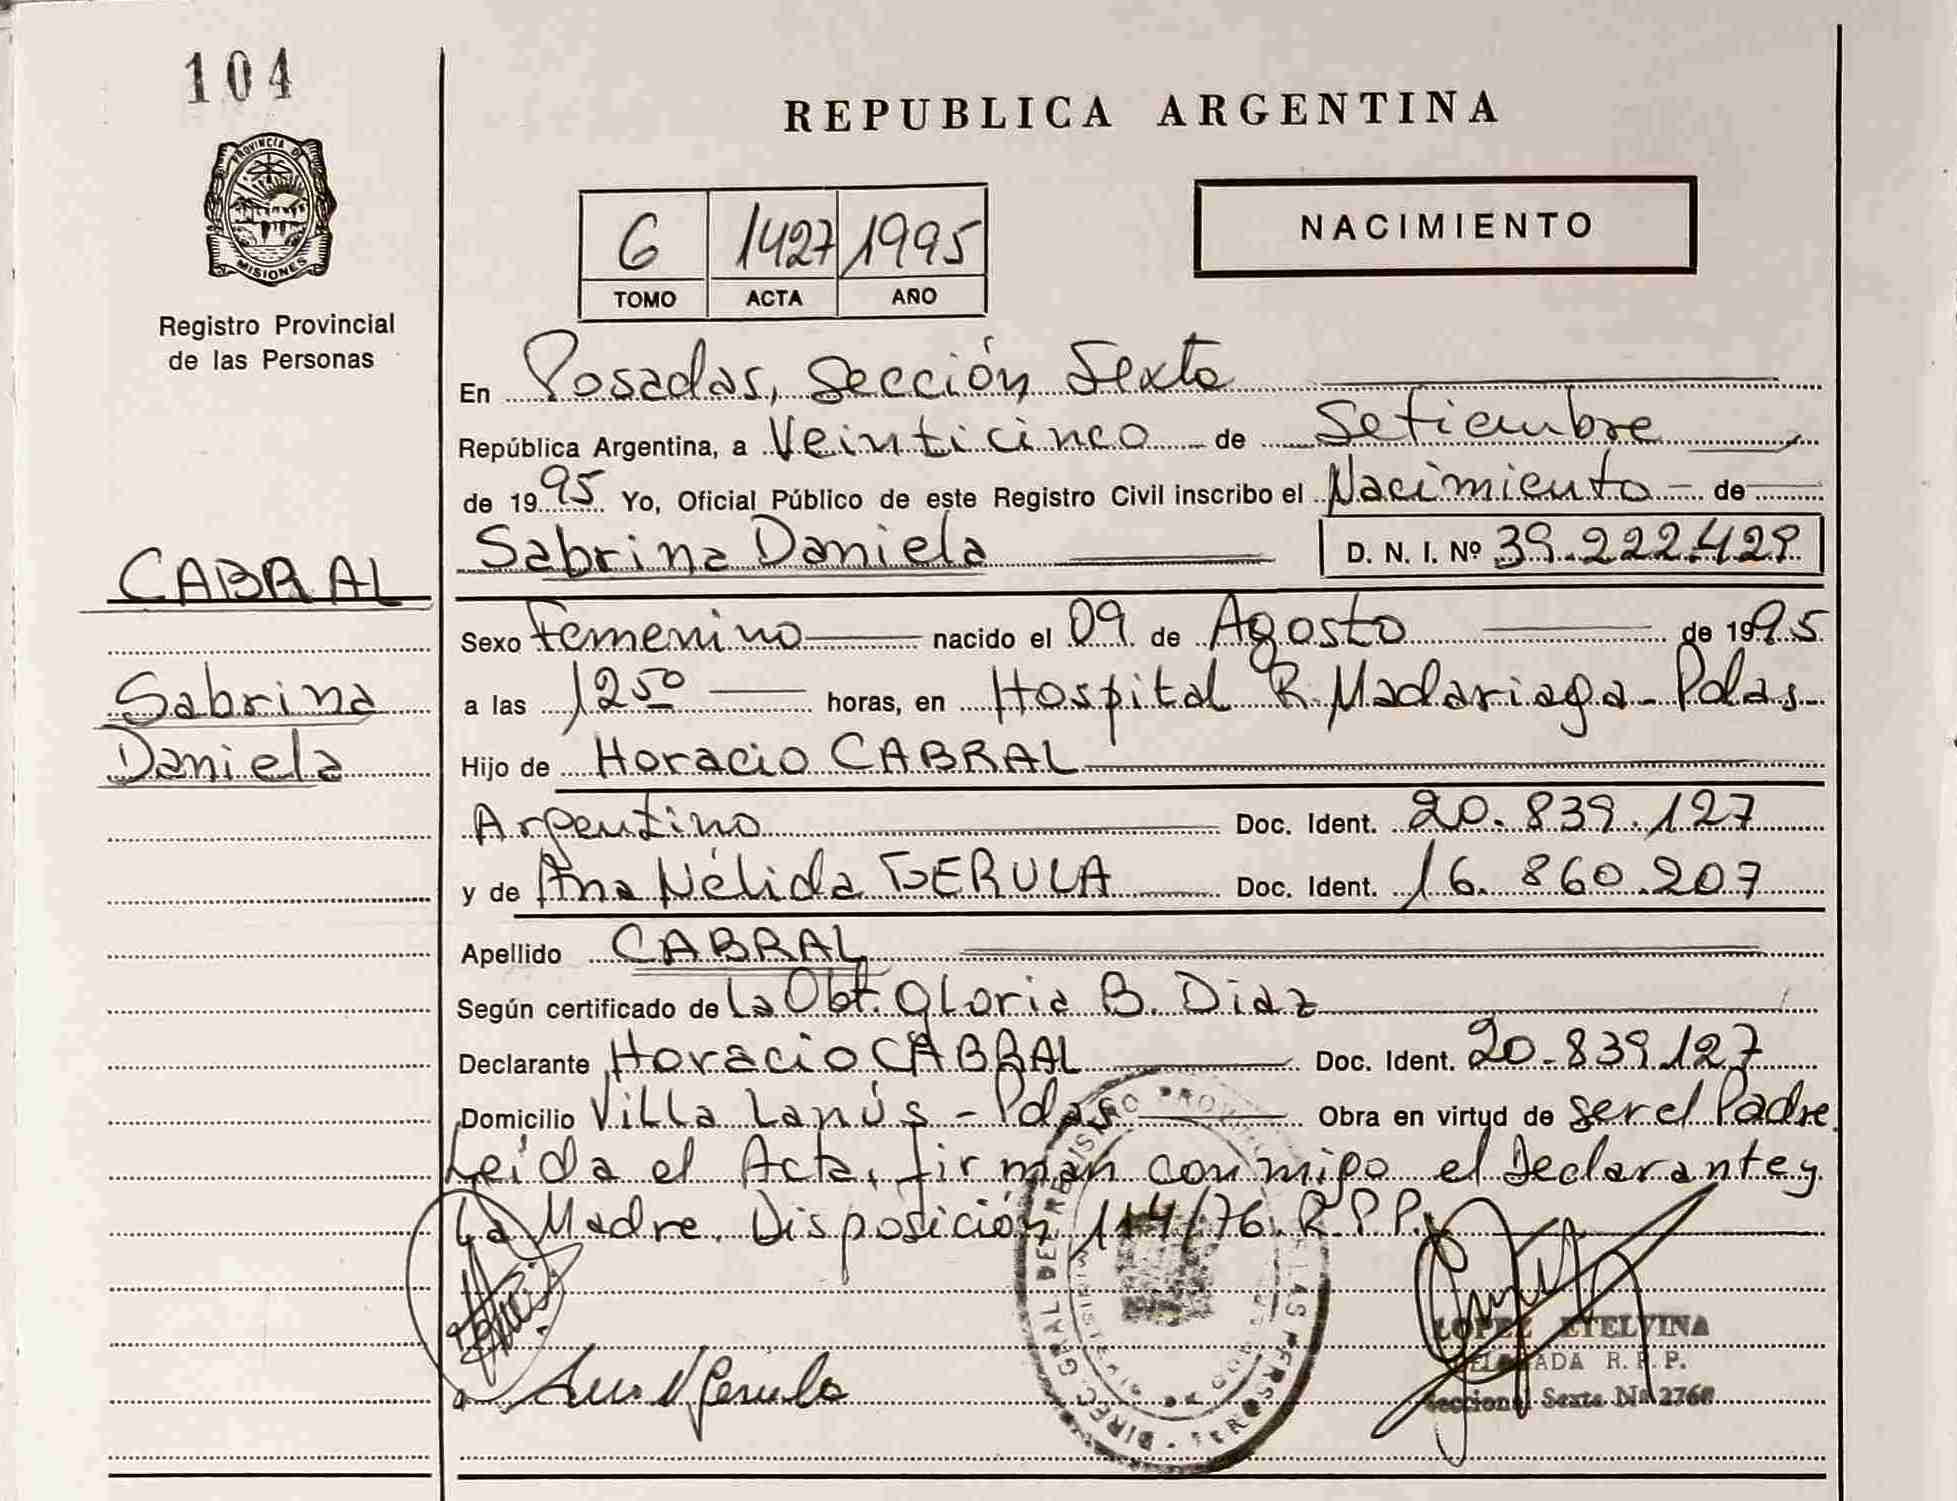 104
PROVINCIA DE
MISIONES
Registro Provincial
de las Personas
REPUBLICA ARGENTINA
6 1427 1995
TOMO ACTA AÑO
NACIMIENTO
En Posadas, Sección Sexta
República Argentina, a Veinticinco de Setiembre
de 1995 Yo, Oficial Público de este Registro Civil inscribo el Nacimiento de
Sabrina Daniela D. N. I. Nº 39.222.429
CABRAL
Sabrina
Daniela
Sexo Femenino nacido el 09 de Agosto de 1995
a las 12 50 horas, en Hospital R. Madariaga - Pdas.
Hijo de Horacio CABRAL
Argentino Doc. Ident. 20.839.127
y de Ana Nélida GERULA Doc. Ident. 16.860.207
Apellido CABRAL
Según certificado de la Obt. Gloria B. Diaz
Declarante Horacio CABRAL Doc. Ident. 20.839.127
Domicilio Villa Lanús - Pdas Obra en virtud de ser el Padre.
Leída el Acta, firman conmigo el Declarante y
La Madre. Disposición 114/76. R.P.P.
LOPEZ ETELVINA
R. P. P.
Seccional Sexta Nº 2768
Ana N Gerula
DIREC. GRAL DEL REGISTRO PROVINCIAL DE LAS PERSONAS